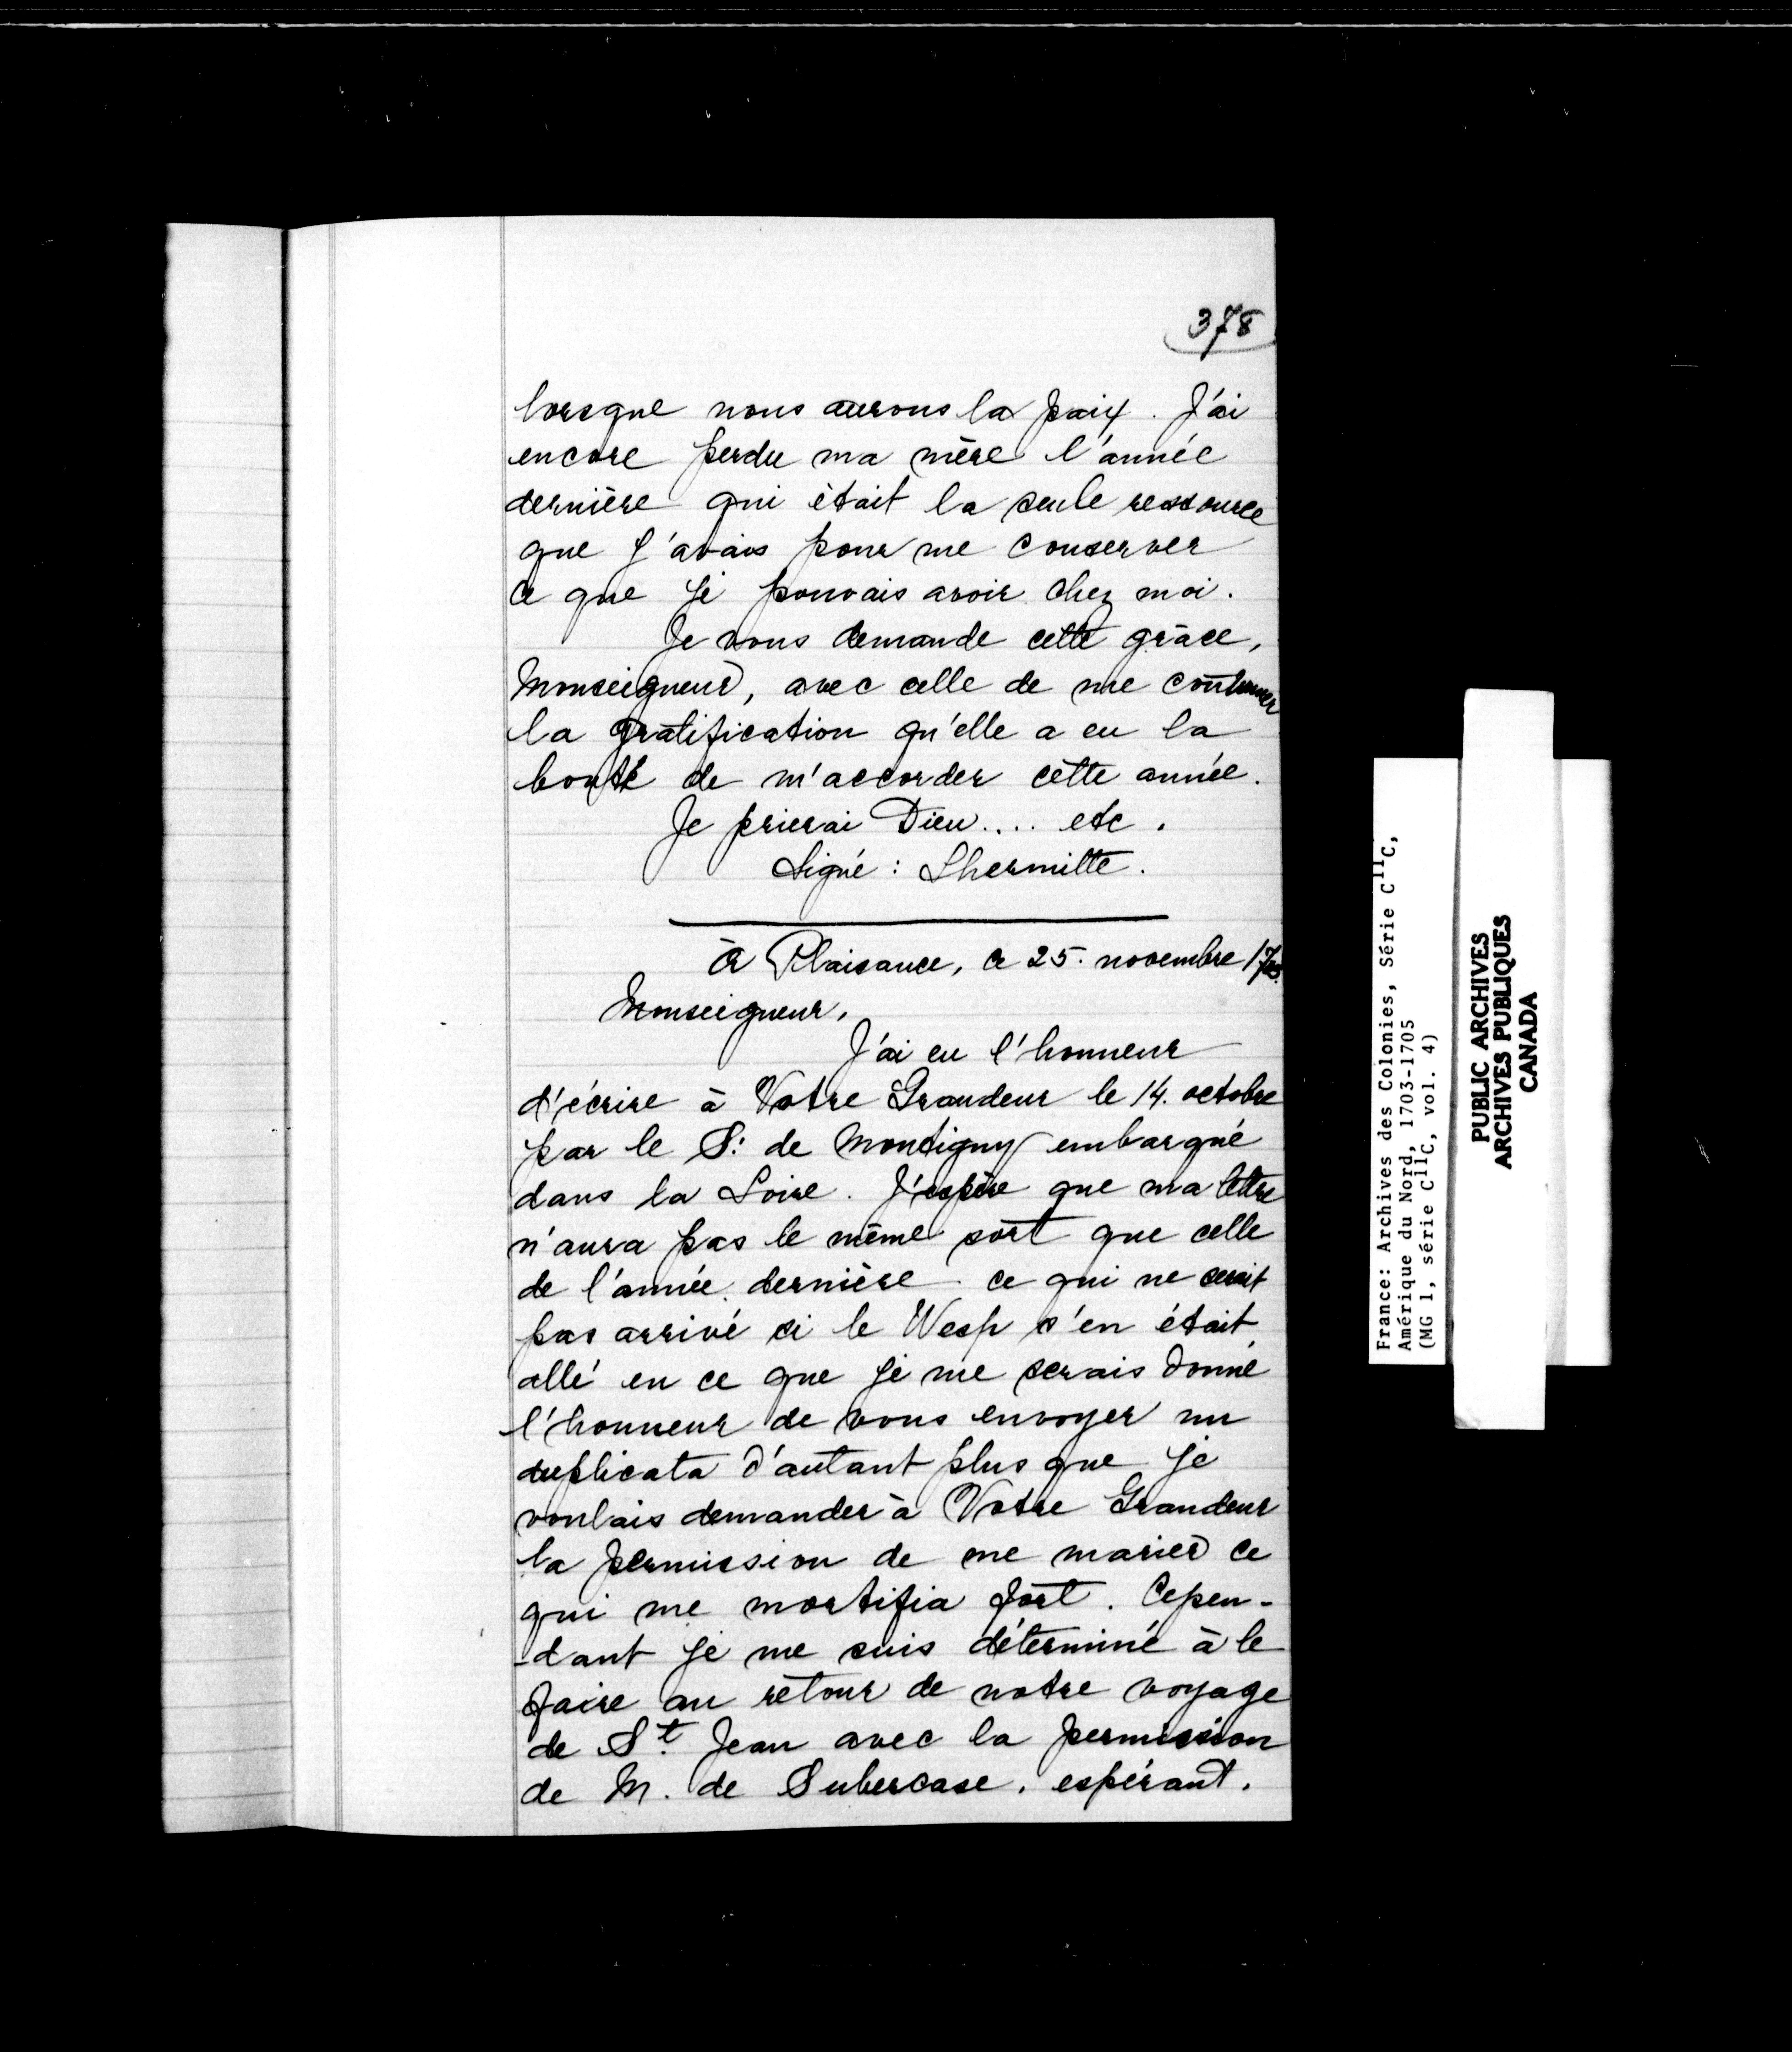 378
lorsque nous aurons la paix. J'ai
encore perdu ma mère l'année
dernière qui était la seule ressource
que j'avais pour me conserver
ce que je pouvais avoir chez moi.
Je vous demande cette grâce,
Monseigneur, avec celle de me continuer
la gratification qu'elle a eu la
bonté de m'accorder cette année.
Je prierai Dieu.... etc.
Signé : Lhermitte.
À Plaisance, ce 25. novembre 1705.
Monseigneur,
J'ai eu l'honneur
d'écrire à Votre Grandeur le 14. octobre
par le S: de Montigny embarqué
dans la Loire. J'espère que ma lettre
n'aura pas le même sort que celle
de l'année dernière ce qui ne serait
pas arrivé si le Wesp s'en était
allé en ce que je me serais donné
l'honneur de vous envoyer un
duplicata d'autant plus que je
voulais demander à Votre Grandeur
la permission de me marier ce
qui me mortifia fort. Cepen-
-dant je me suis déterminé à le
faire au retour de notre voyage
de St. Jean avec la permission
de M. de Subercase, espérant.
France: Archives des Colonies, Série C11C,
Amérique du Nord, 1703-1705
(MG 1, série C11C, vol. 4)
PUBLIC ARCHIVES
ARCHIVES PUBLIQUES
CANADA